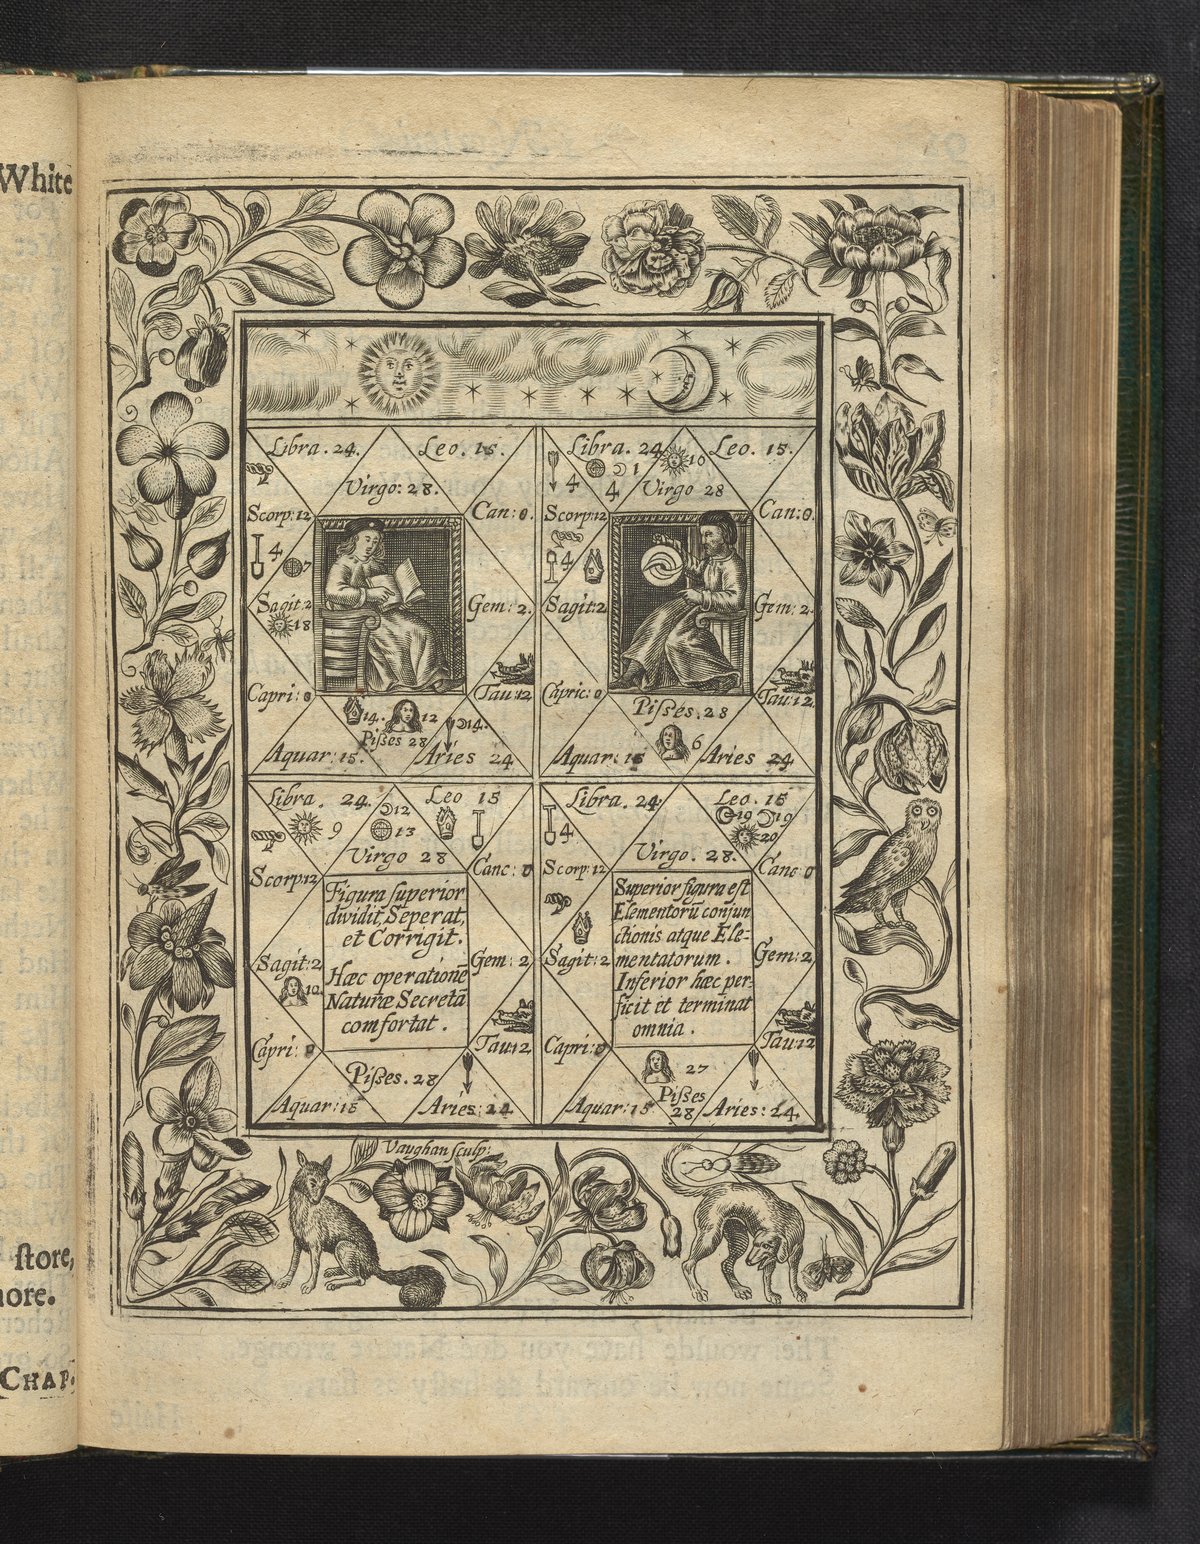 White
store,
ore.
CHAP.
Libra. 24.
Leo. 15.
Virgo: 28.
Scorp: 12
Can: 0.
4
7
Sagit: 2
18
Gem: 2.
Capri: 0
Tau: 12
14.
12
14.
Pisses 28
Aquar: 15.
Aries 24
Libra. 24
Leo. 15.
1
10
4
4
Virgo 28
Scorp: 12
Can: 0.
4
Sagit: 2
Gem: 2.
Capric: 0
Tau: 12
Pisses. 28
6
Aquar: 15
Aries 24
Libra. 24.
Leo 15
12
9
13
Virgo 28
Scorp: 12
Canc: 0
Figura superior
dividit, Seperat,
et Corrigit.
Hæc operationē
Naturæ Secretā
comfortat.
Sagit: 2
10
Gem: 2
Capri: 0
Tau: 12
Pisses. 28
Aquar: 15
Aries: 24
Libra. 24
Leo. 15
4
19
19
20
Virgo. 28.
Scorp: 12
Canc 0
Superior figura est
Elementorū conjun
ctionis atque Ele-
mentatorum.
Inferior hæc per-
ficit et terminat
omnia.
Sagit: 2
Gem: 2
Capri: 0
Tau: 12
27
Pisses
28
Aquar: 15
Aries: 24
Vaughan sculp: